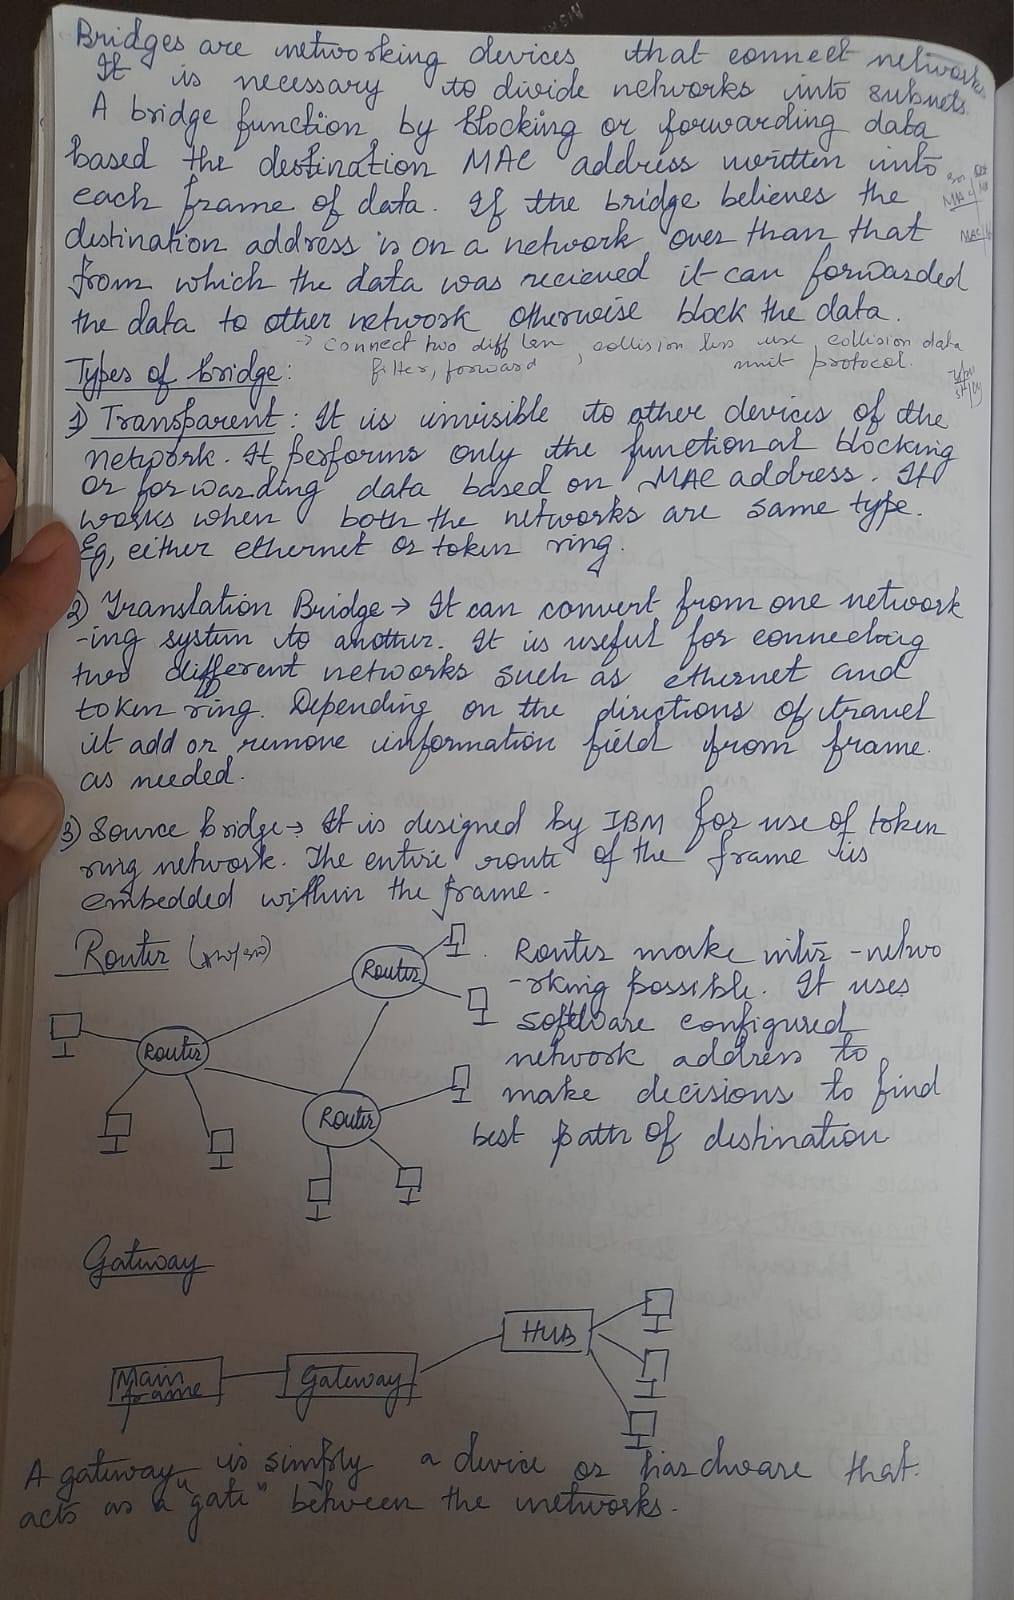 Bridges are networking devices that connect networks
It is necessary to divide networks into subnets.
A bridge function by blocking or forwarding data
based the destination MAC address written into
each frame of data. If the bridge believes the
destination address is on a network over than that
from which the data was recieved it can forwarded
the data to other network otherwise block the data.
→ connect two diff lan, collision less use, collision data
filter, forward unit protocol.
Types of bridge:
1) Transparent: It is invisible to other devices of the
network. It performs only the function of blocking
or forwarding data based on MAC address. It
works when both the networks are same type.
Eg, either ethernet or token ring.
2) Translation Bridge → It can convert from one network
-ing system to another. It is useful for connecting
two different networks such as ethernet and
token ring. Depending on the directions of travel
it add or remove information field from frame
as needed.
3) Source bridge → It is designed by IBM for use of token
ring network. The entire route of the frame is
embedded within the frame.
Router
Router
Router
Router
Router make inter-netwo
-rking possible. It uses
software configured
network address to
make decisions to find
best path of destination
Gateway
Main
frame
Gateway
HUB
A gateway is simply a device or hardware that
acts as a "gate" between the networks.